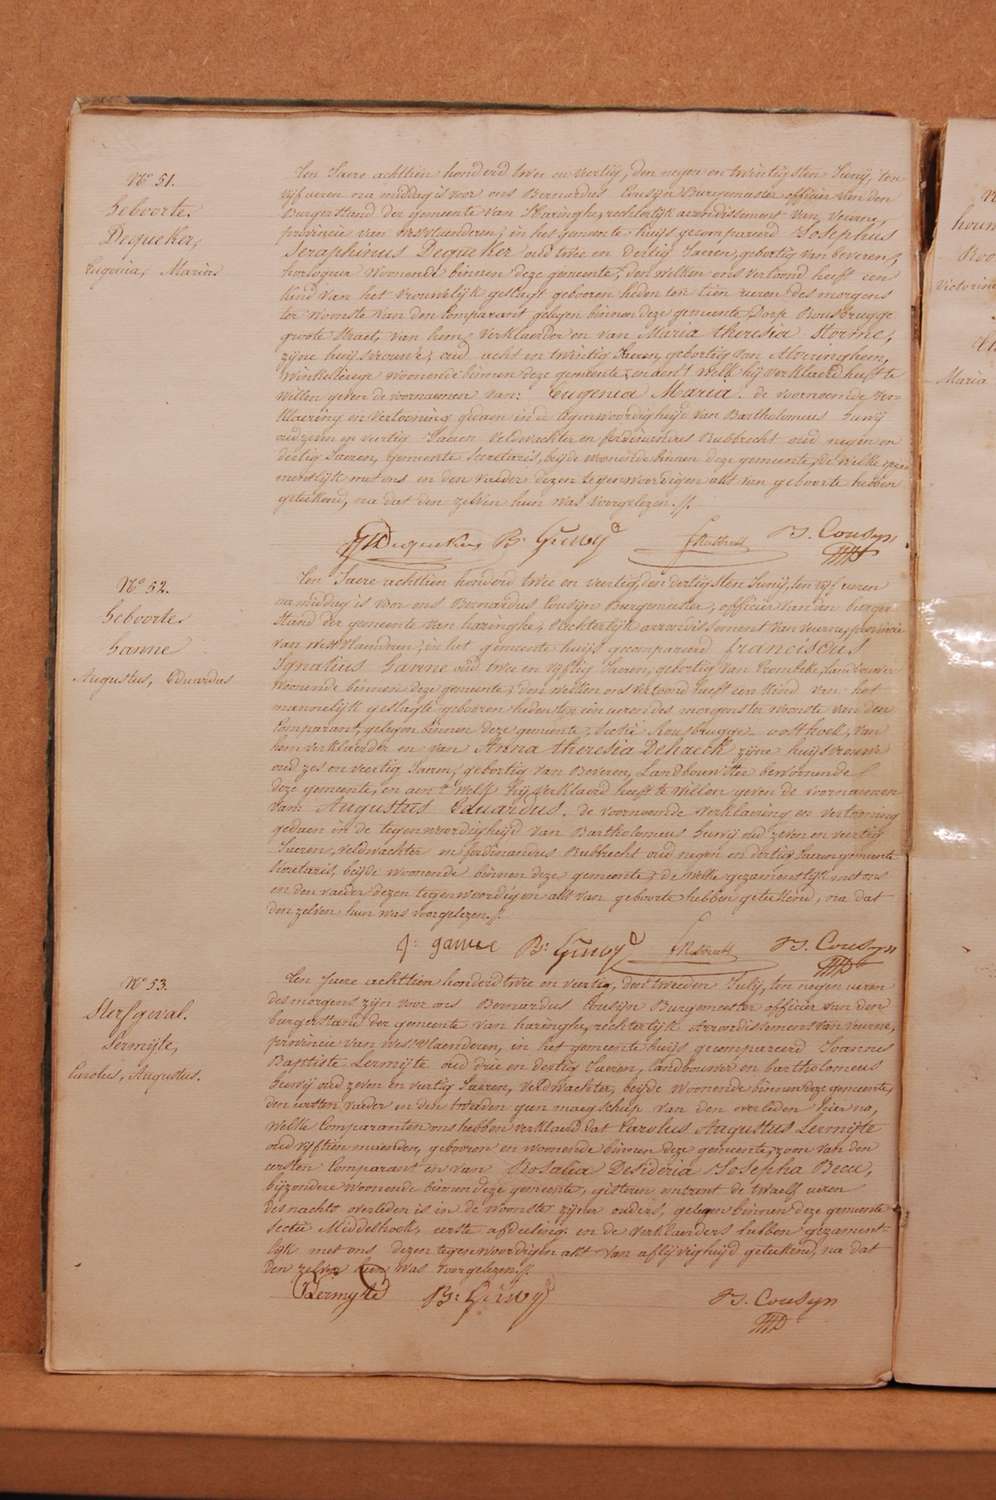 N° 51.
Geboorte.
Dequeker,
Eugenia, Maria.
Ten Jaere achttien honderd twee en veertig, den negen en twintigsten Junij, ten
vijf ueren na middag is voor ons Bernardus Cousijn Burgemeester officier van den
Burgerstand der gemeente van Haringhe, rechterlijk arrondissement van veurne,
provincie van westvlaenderen, in het gemeente huijs gecompareerd Josephus
Seraphinus Dequeker oud twee en dertig Jaeren, gebortig van beveren,
horlogier woonende binnen deze gemeente; den welken ons vertoond heeft een
kind van het vrouwelijk geslagt geboren heden ten tien ueren des morgens
ter woonste van den Comparant gelegen binnen deze gemeente Dorp Rousbrugge
groote Straet, van hem verklaerder en van Maria theresia Storme,
zijne huijsvrouwe, oud acht en twintig Jaeren, gebortig van
Winkelierige woonende binnen deze gemeente, en aen 't welk hij verklaerd heeft te
willen geven de voornaemen van: Eugenia Maria. de voornoemde ver-
klaering en vertooning gedaen in de tegenwoordigheijd van Bartholomeus Gunij
oud zeven en veertig Jaeren Veldwachter en ferdinandus Rubbrecht oud negen en
dertig Jaeren, Gemeente Secretaris, beijde woonende binnen deze gemeente, de welke gezae-
mentlijk met ons en den vaeder dezen tegenwoordigen akt van geboorte hebben
geteekend, na dat den zelven hun was voorgelezen./.
Dequeker B. Guwy FRubbrecht B. Cousyn
N° 52.
Geboorte.
Ganne
Augustus, Eduardus
Ten Jaere achttien honderd twee en veertig, den dertigsten Junij, ten vijf ueren
na middag is voor ons Bernardus Cousijn Burgemeester, officier van den burger
stand der gemeente van haringhe, Rechterlijk arrondissement van veurne, provincie
van westvlaendren, in het gemeente huijs gecompareerd franciscus
Ignatius Ganne oud twee en vijftig Jaeren, gebortig van Proonbeke, Landbouwer
woonende binnen deze gemeente; den welken ons vertoond heeft een kind van het
mannelijk geslagte geboren heden ten een ueren des morgens ter woonste van den
Comparant, gelegen binnen deze gemeente, Sectie Rousbrugge oosthoek, van
hem verklaerder en van Anna theresia Dehaeck zijne huijsvrouwe
oud zes en veertig Jaeren, gebortig van Beveren, Landbouwster bewoonende
deze gemeente, en aen 't welk hij verklaerd heeft te willen geven de voornaemen
van: Augustus Eduardus. de voornoemde verklaering en vertooning
gedaen in de tegenwoordigheijd van Bartholomeus Guwij oud zeven en veertig
Jaeren, veldwachter en ferdinandus Rubbrecht oud negen en dertig Jaeren gemeente
Secretaris, beijde woonende binnen deze gemeente; de welke gezamentlijk met ons
en den vaeder dezen tegenwoordigen akt van geboorte hebben geteekend, na dat
den zelven hun was voorgelezen./.
f: ganne B. Guwy FRubbrecht B. Cousyn
N° 53.
Sterfgeval.
Lermijte,
Carolus, Augustus.
Ten Jaere achttien honderd twee en veertig, den tweeden Julij, ten negen ueren
des morgens zijn voor ons Bernardus Cousijn Burgmeester officier van den
burgerstand der gemeente van haringhe, rechterlijk Arrondissement van veurne,
provincie van West Vlaenderen, in het gemeente huijs gecompareerd Joannes
Baptiste Lermijte oud drie en dertig Jaeren, Landbouwer en bartholomeus
Guwij oud zeven en veertig Jaeren, Veldwachter, beijde woonende binnen deze gemeente,
den eersten vaeder en den tweeden geen maegschap van den overleden hier na,
welke Comparanten ons hebben verklaerd dat Carolus Augustus Lermijte
oud vijftien maenden, geboren en woonende binnen deze gemeente, zoon van den
eersten Comparant en van Rosalia Desideria Josepha Becu,
bijzondere woonende binnen deze gemeente, gisteren omtrent de twaelf ueren
des nachts overleden is in de woonste zijner ouders, gelegen binnen deze gemeente
sectie Middelhoek, eerste afdeeling. en de verklaerders hebben gezament-
lijk met ons dezen tegenwoordigen akt van aflijvigheijd geteekend, na dat
den zelven hun was voorgelezen./.
Lermyte B. Guwy B. Cousyn
houn
Victorine
Maria